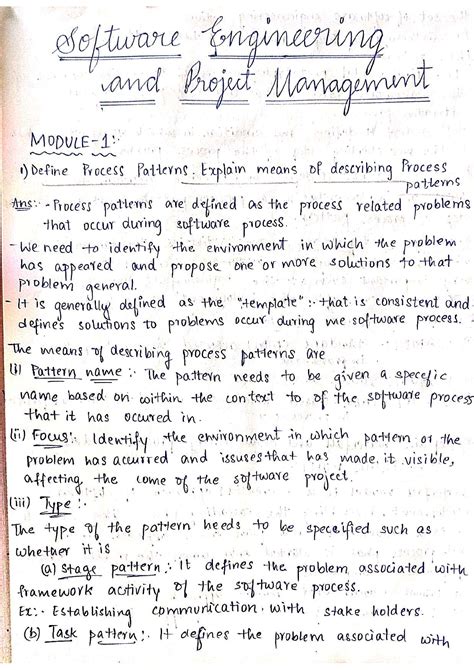 Software Engineering
and Project Management
MODULE-1:-
1) Define Process Patterns. Explain means of describing Process
patterns
Ans:- - Process patterns are defined as the process related problems
that occur during software process.
- We need to identify the environment in which the problem
has appeared and propose one or more solutions to that
problem general.
- It is generally defined as the "template":- that is consistent and
defines solutions to problems occur during me software process.
The means of describing process patterns are
(i) Pattern name:- The pattern needs to be given a specefic
name based on within the context to of the software process
that it has occured in.
(ii) Focus:- Identify the environment in which pattern or the
problem has accurred and issues that has made it visible,
affecting the come of the software project.
(iii) Type:-
The type of the pattern needs to be specified such as
whether it is
(a) Stage pattern:- It defines the problem associated with
framework activity of the software process.
Ex:- Establishing communication with stake holders.
(b) Task pattern:- It defines the problem associated with